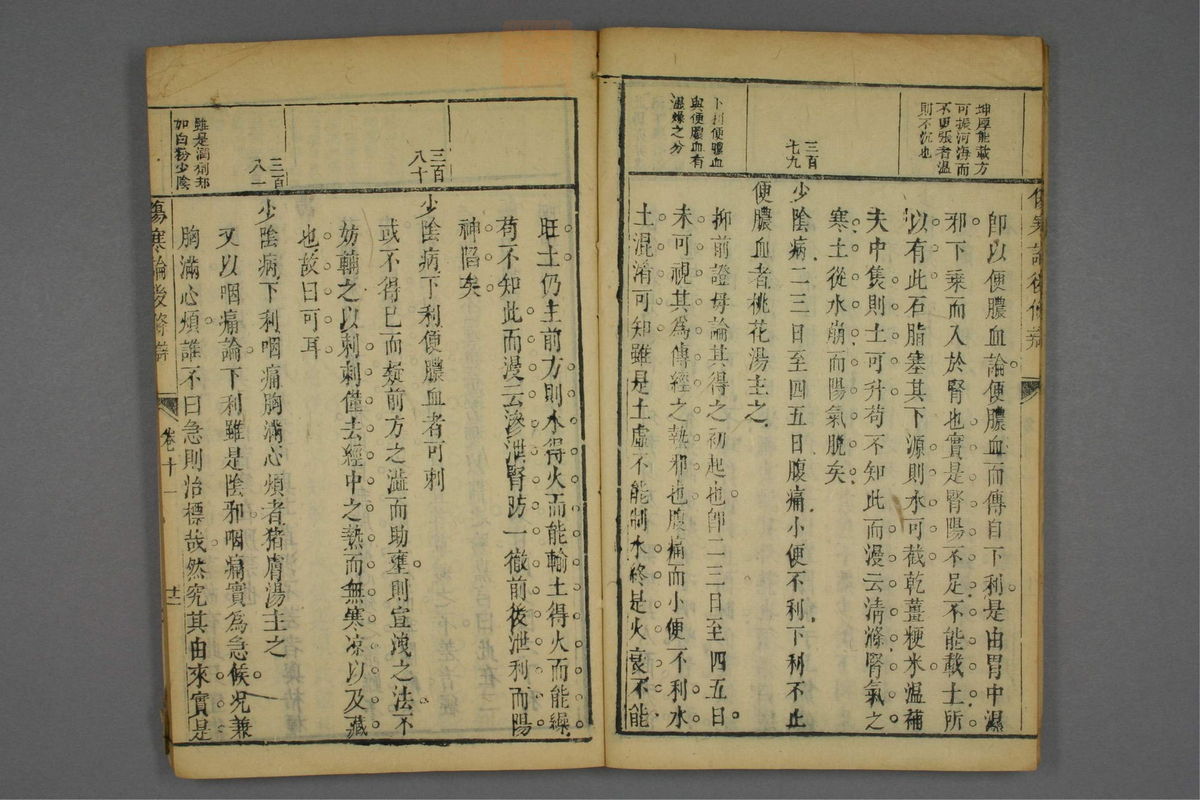 坤厚能載方
可振河海而
不更張者溫
則不沉也
卽以便膿血論便膿血而傳自下利是由胃中濕
邪下乘而入於腎也實是腎陽不足不能載土所
以有此石脂塞其下源則水可截乾薑粳米溫補
夫中隻則土可升苟不知此而漫云清滌腎氣之
寒土從水崩而陽氣脫矣
三百
七九
少陰病二三日至四五日腹痛小便不利下利不止
便膿血者桃花湯主之
卜利便膿血
與便膿血有
濕燥之分
抑前證毋論其得之初起也卽二三日至四五日
未可視其爲傳經之熱邪也腹痛而小便不利水
土混淆可知雖是土虛不能制水終是火衰不能
旺土仍主前方則水得火而能輸土得火而能燥
苟不知此而漫云滲泄腎肪一徹前後泄利而陽
神陷矣
三百
八十
少陰病下利便膿血者可刺
或不得已而疑前方之溫而助壅則宣洩之法不
妨輔之以刺刺僅去經中之熱而無寒凉以及藏
也故曰可耳
三百
八一
少陰病下利咽痛胸滿心煩者猪膚湯主之
雖是潤劑却
加白粉少陰
又以咽痛論下利雖是陰邪咽痛實爲急候况兼
胸滿心煩誰不曰急則治標哉然究其由來實是
傷寒論後條辨
卷十一